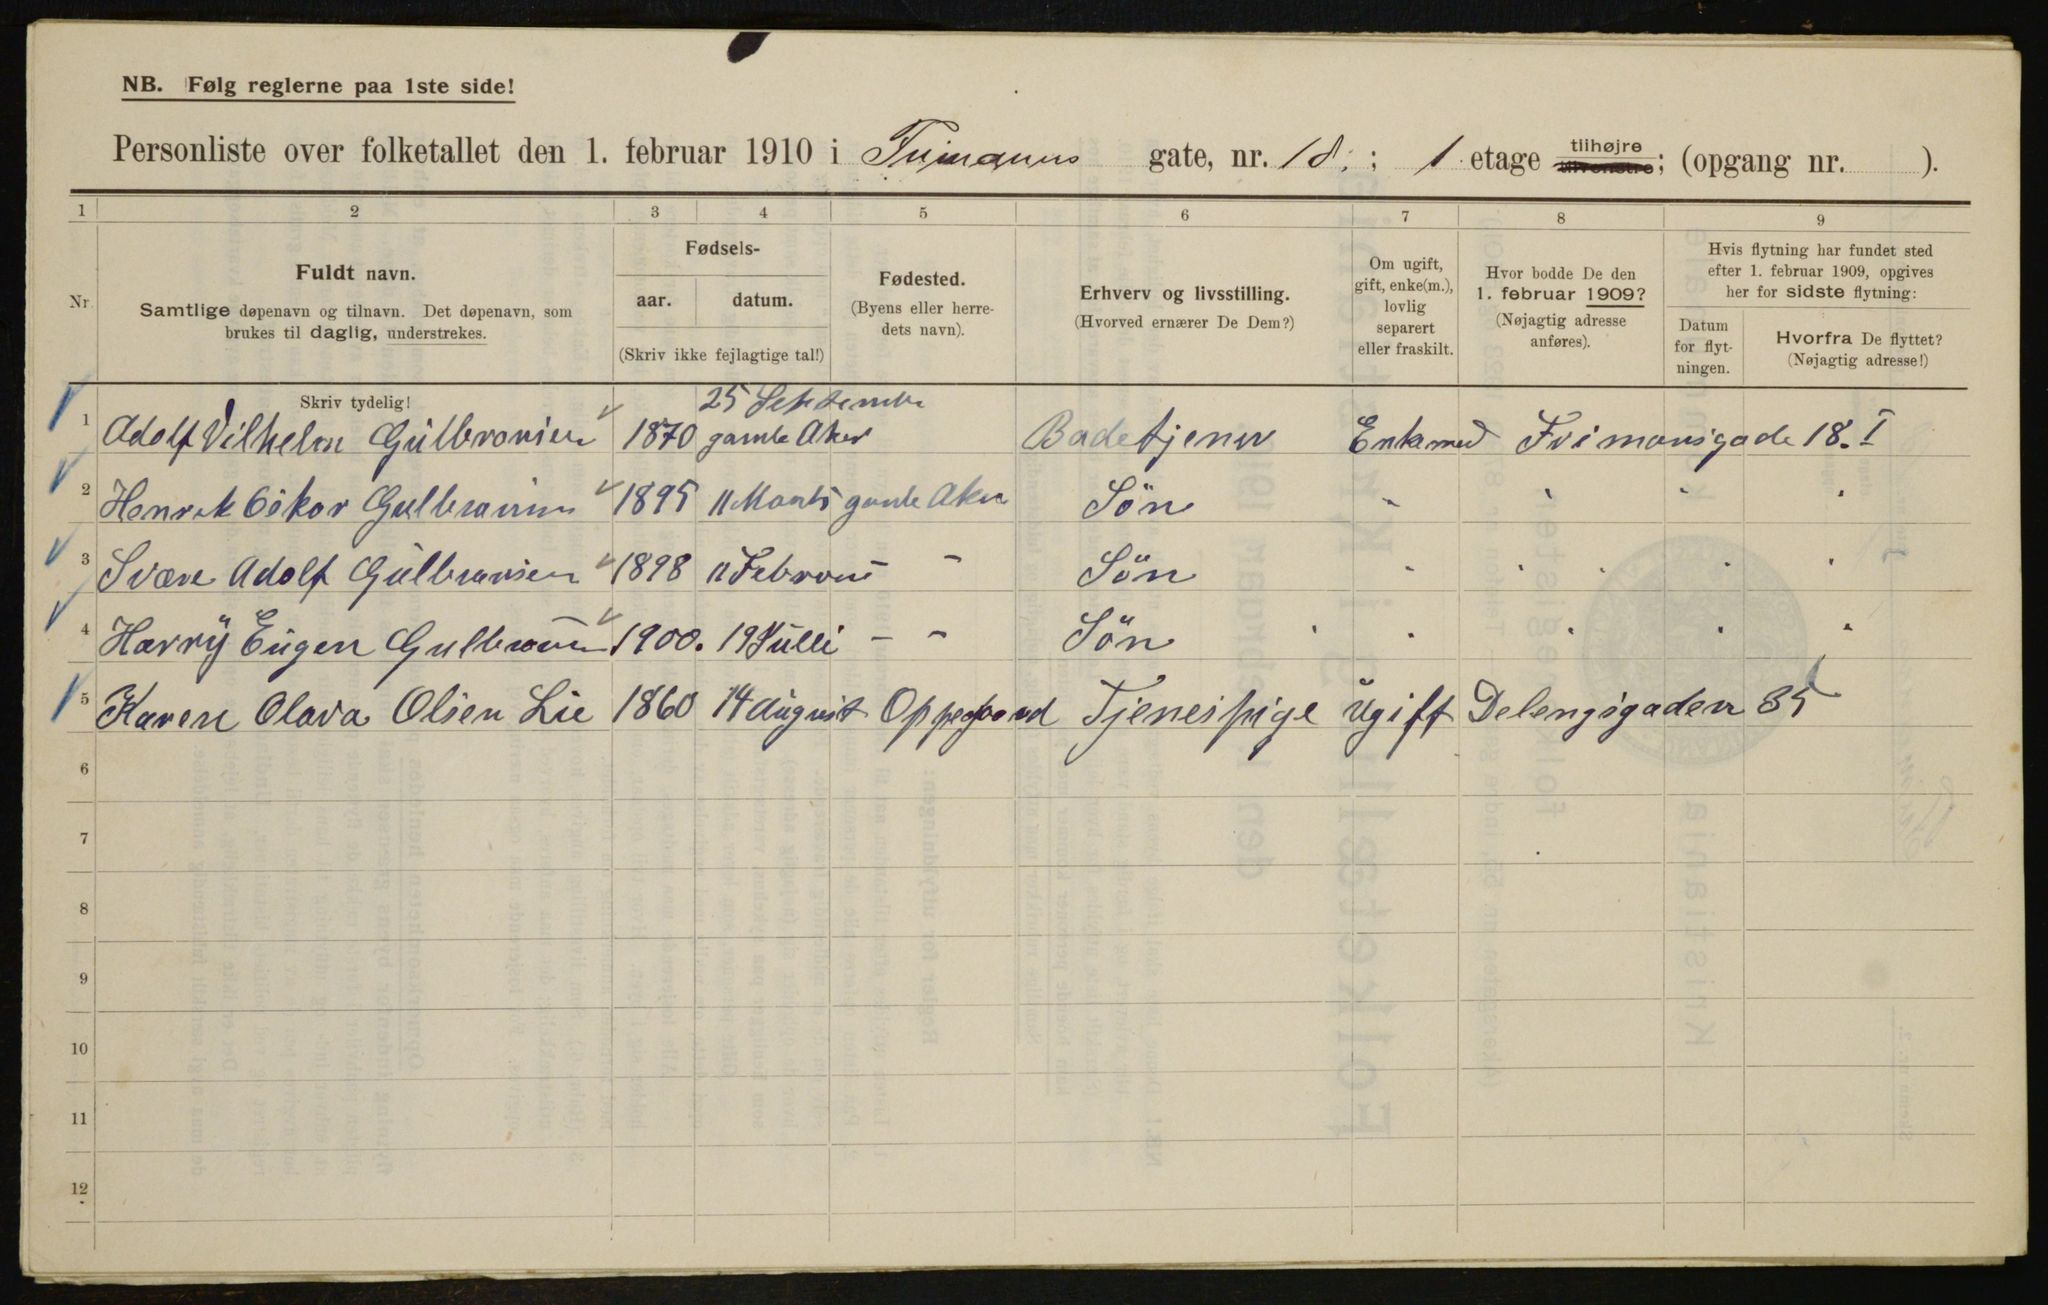 NB. Følg reglerne paa 1ste side!
Personliste over folketallet den 1. februar 1910 i Frimanns gate, nr. 18. ; 1. etage tilhøjre tilvenstre; (opgang nr. ).
1 2 3 4 5 6 7 8 9
Nr.
Fuldt navn.
Samtlige døpenavn og tilnavn. Det døpenavn, som
brukes til daglig, understrekes.
Fødsels-
aar. datum.
(Skriv ikke fejlagtige tal!)
Fødested.
(Byens eller herre-
dets navn).
Erhverv og livsstilling.
(Hvorved ernærer De Dem?)
Om ugift,
gift, enke(m.),
lovlig
separert
eller fraskilt.
Hvor bodde De den
1. februar 1909?
(Nøjagtig adresse
anføres).
Hvis flytning har fundet sted
efter 1. februar 1909, opgives
her for sidste flytning:
Datum
for flyt-
ningen.
Hvorfra De flyttet?
(Nøjagtig adresse!)
Skriv tydelig!
25 September
1 Adolf Vilhelm Gülbransen 1870 gamle Aker Badetjener Enkemed Frimansgade 18. I
2 Henrik Oskar Gulbransen 1895 11 Marts gamle Aker Sön " " " "
3 Svære Adolf Gülbransen 1898 11 Februar " Sön " " " " "
4 Harry Eugen Gulbransen 1900. 19 Jülli – " Sön " " " " "
5 Karen Olava Olsen Lie 1860 14 August Oppegaard Tjenespige Ugift Delengsgaden 85
6
7
8
9
10
11
12